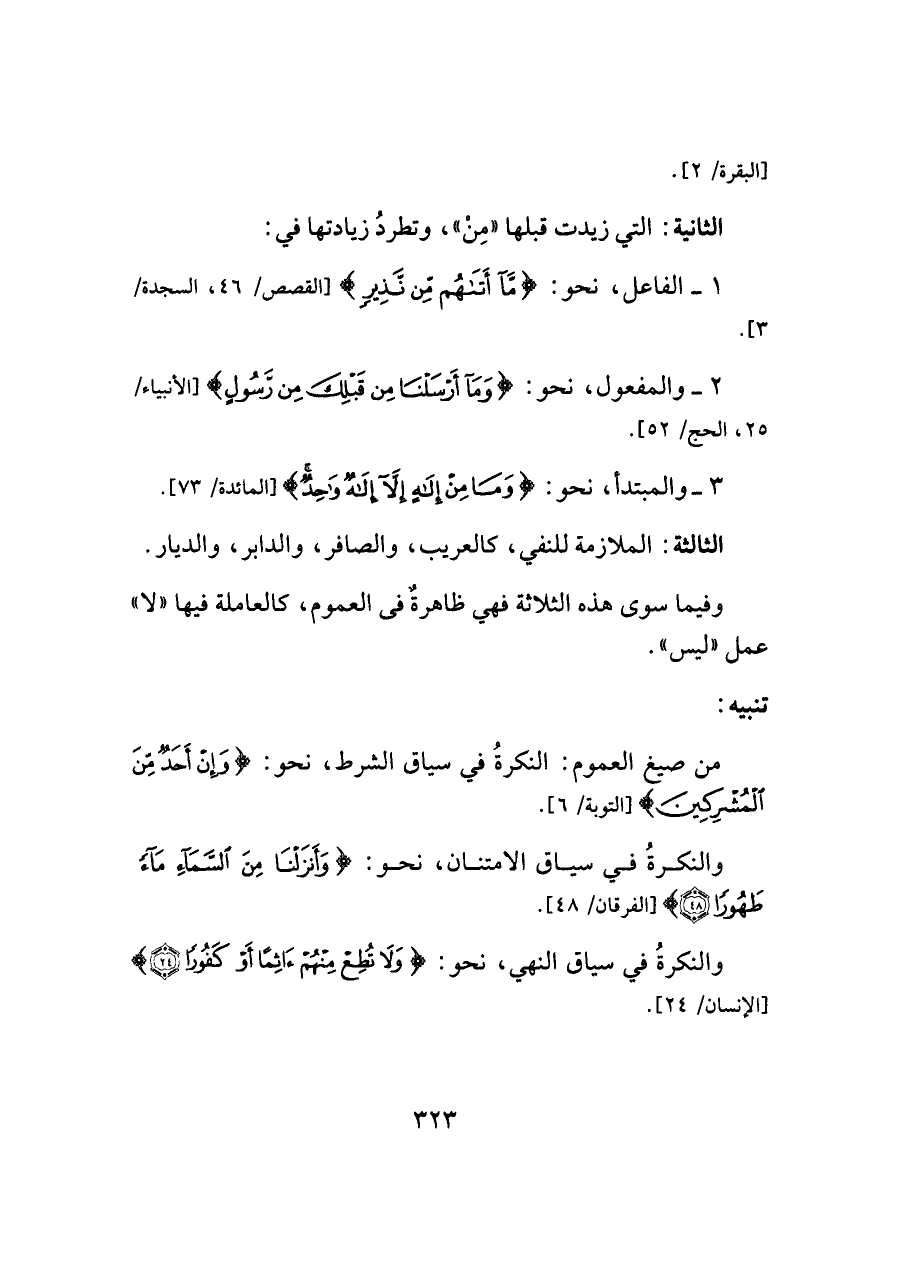 [البقرة/ ٢].
الثانية: التي زيدت قبلها «مِنْ»، وتطردُ زيادتها في:
١ ـ الفاعل، نحو: ﴿ مَّآ أَتَىٰهُم مِّن نَّذِيرٖ ﴾ [القصص/ ٤٦، السجدة/
٣].
٢ ـ والمفعول، نحو: ﴿ وَمَآ أَرْسَلْنَا مِن قَبْلِكَ مِن رَّسُولٍ ﴾ [الأنبياء/
٢٥، الحج/ ٥٢].
٣ ـ والمبتدأ، نحو: ﴿ وَمَا مِنْ إِلَٰهٍ إِلَّآ إِلَٰهٞ وَٰحِدٞۚ ﴾ [المائدة/ ٧٣].
الثالثة: الملازمة للنفي، كالعريب، والصافر، والدابر، والديار.
وفيما سوى هذه الثلاثة فهي ظاهرةٌ فى العموم، كالعاملة فيها «لا»
عمل «ليس».
تنبيه:
من صيغ العموم: النكرةُ في سياق الشرط، نحو: ﴿ وَإِنْ أَحَدٞ مِّنَ
ٱلْمُشْرِكِينَ ﴾ [التوبة/ ٦].
والنكرةُ في سياق الامتنان، نحو: ﴿ وَأَنزَلْنَا مِنَ ٱلسَّمَآءِ مَآءٗ
طَهُورٗا ٤٨ ﴾ [الفرقان/ ٤٨].
والنكرةُ في سياق النهي، نحو: ﴿ وَلَا تُطِعْ مِنْهُمْ ءَاثِمًا أَوْ كَفُورٗا ٢٤ ﴾
[الإنسان/ ٢٤].
٣٢٣